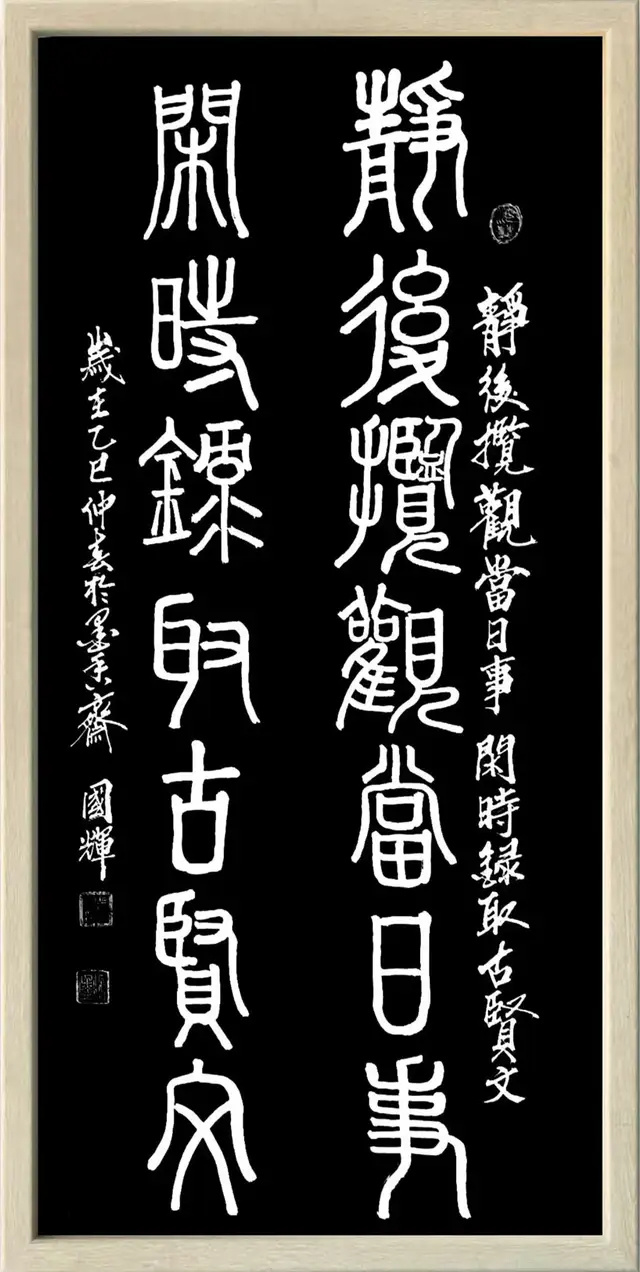 靜後攬觀當日事閑時錄取古賢文
靜後攬觀當日事
閑時錄取古賢文
歲在乙巳仲春於墨香齋 國輝